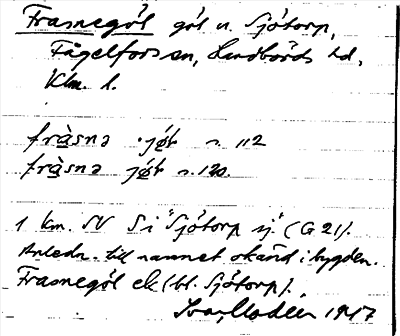 Frasnegöl göl u. Sjötorp,
Fågelfors sn, Handbörds hd,
Klm. l.
fràsnə jø̀l s. 112
fràsnə jø̀l s. 120.
1 km. SV S i "Sjötorp sj." (G 21).
Anledn. till namnet okänd i bygden.
Frasnegöl ek (bl. Sjötorp).
Modéer 1917